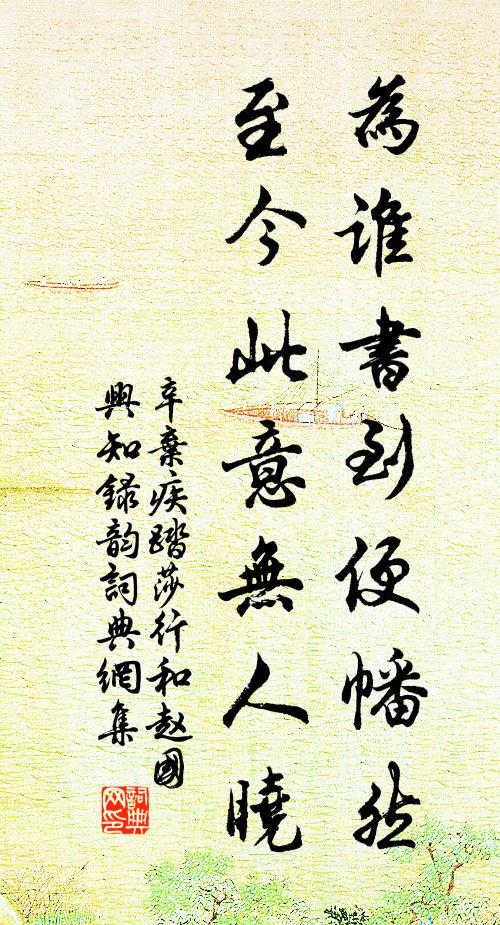 為誰書到便幡然
至今此意無人曉
辛棄疾踏莎行和赵國
興知錄韵詞典網集
詞典網印